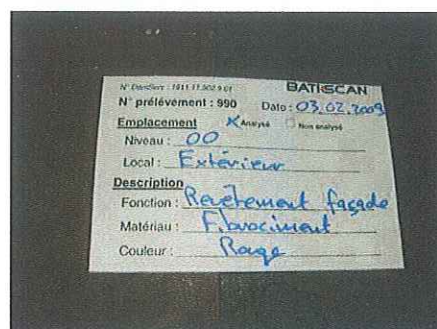 N° Dossier : 1011.11.902.9.01
BATISCAN
N° prélèvement : 990 Date : 03.02.2009
Emplacement X Analysé Non analysé
Niveau : 00
Local : Extérieur
Description
Fonction : Revêtement façade
Matériau : Fibrociment
Couleur : Rouge